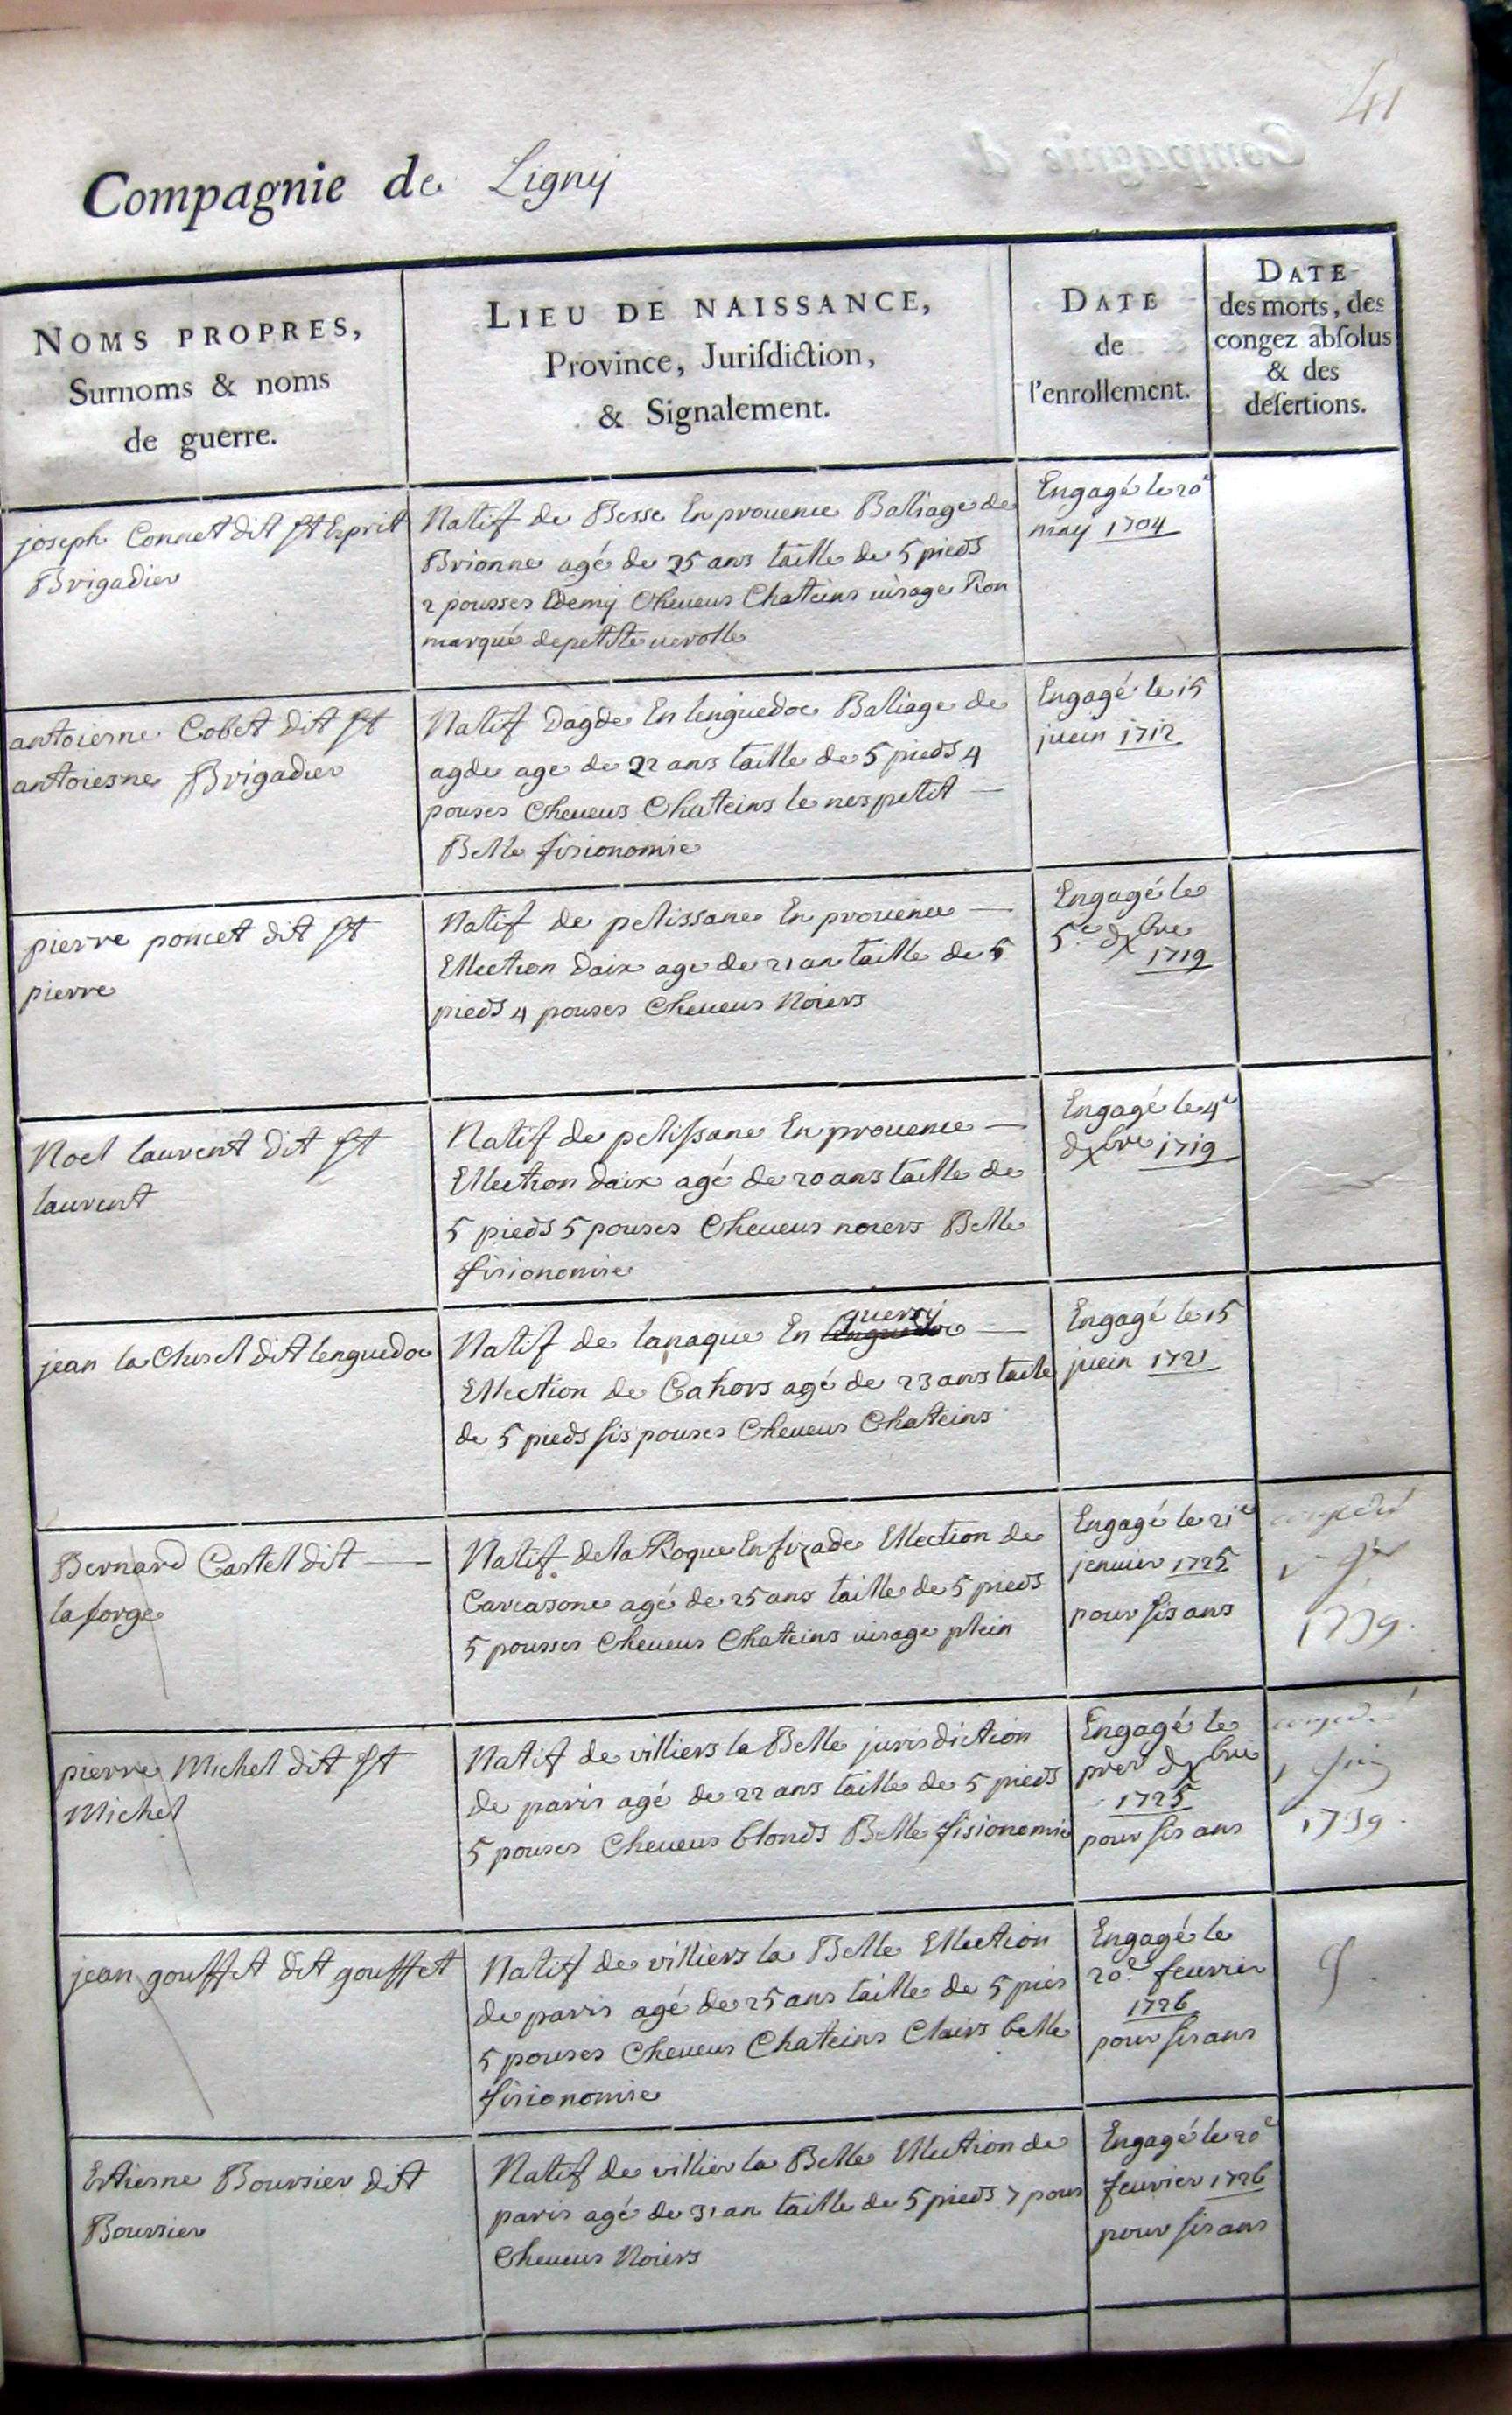 41
Compagnie de Ligny
NOMS PROPRES,
Surnoms & noms
de guerre.
LIEU DE NAISSANCE,
Province, Jurisdiction,
& Signalement.
DATE
de
l'enrollement.
DATE
des morts, des
congez absolus
& des
desertions.
joseph Connet dit st Esprit
Brigadier
Natif de Besse En prouence Baliage de
Brionne agé de 25 ans taille de 5 pieds
2 pousses Edemy Cheueus Chateins uisage Ron
marqué de petite uerolle
Engagé le 20e
may 1704
antoiesne Cobet dit st
antoiesne Brigadier
Natif Dagde En lenguedoc Baliage de
agde age de 22 ans taille de 5 pieds 4
pouses Cheueus Chateins le nes petit —
Belle fisionomie
Engagé le 15
juein 1712
pierre poncet dit st
pierre
Natif de pelissane En prouence —
Ellection Daix age de 21 an taille de 5
pieds 4 pouses Cheueus Noiers
Engagé le
5e dxbre
1719
Noel laurent dit st
laurent
Natif de pelissane En prouence —
Ellection daix agé de 20 ans taille de
5 pieds 5 pouses Cheueus noiers Belle
fisionomie
Engagé le 4e
dxbre 1719
jean la Clusel dit lenguedoc
Natif de lanaque En lenguedoc quersy —
Ellection de Cahors agé de 23 ans taile
de 5 pieds sis pouses Cheueus Chateins
Engagé le 15
juein 1721
Bernard Castel dit —
laforge
Natif de la Roque Enfizade Ellection de
Carcasone agé de 25 ans taille de 5 pieds
5 pousses Cheueus Chateins uisage plein
Engagé le 21e
jenuier 1725
pour sis ans
1739.
pierre Michel dit st
Michel
Natif de villiers la Belle jurisdiction
de paris agé de 22 ans taille de 5 pieds
5 pouses Cheueus blonds Belle fisionomie
Engagé le
prer dxbre
1725
pour sis ans
1739.
jean gouffet dit gouffet
Natif de villiers la Belle Ellection
de paris agé de 25 ans taille de 5 pies
5 pouses Cheueus Chateins Clairs belle
fisionomie
Engagé le
20e feurier
1726
pour sis ans
Estiesne Boursier dit
Boursier
Natif de villier la Belle Ellection de
paris agé de 31 an taille de 5 pieds 7 pous
Cheueus Noiers
Engagé le 20e
feurier 1726
pour sis ans